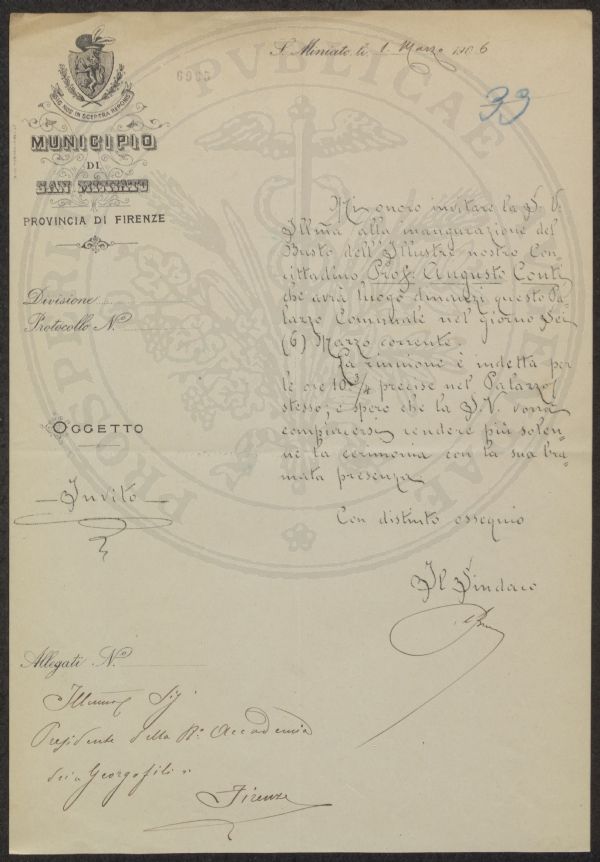 S. Miniato li 1. Marzo 1906
6906
33
SIC NOS IN SCEPTRA REPONIS
MUNICIPIO
DI
SAN MINIATO
PROVINCIA DI FIRENZE
Divisione
Protocollo N.o
OGGETTO
Invito
Mi onoro invitare la S. V.
Illma alla inaugurazione del
Busto dell'Illustre nostro Con-
cittadino Prof. Augusto Conti,
che avrà luogo dinanzi questo Pa-
lazzo Comunale nel giorno Sei
(6) Marzo corrente.
La riunione è indetta per
le ore 10 3/4 precise nel Palazzo
stesso; e spero che la S. V. vorrà
compiacersi rendere più solen-
ne la cerimonia con la sua bra-
mata presenza.
Con distinto ossequio
Il Sindaco
Allegati N.o
Illmo Sig.
Presidente della Ra. Accademia
dei Georgofili
Firenze
PROSPERITATI PUBLICAE AUGENDAE